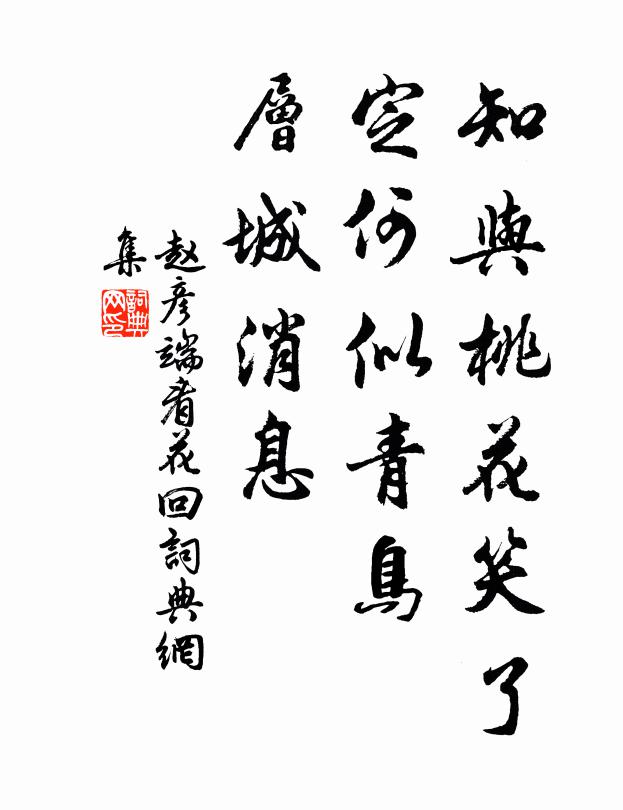 知與桃花笑了
定何似青鳥
層城消息
赵彥端看花回詞典網
集
詞典
网印